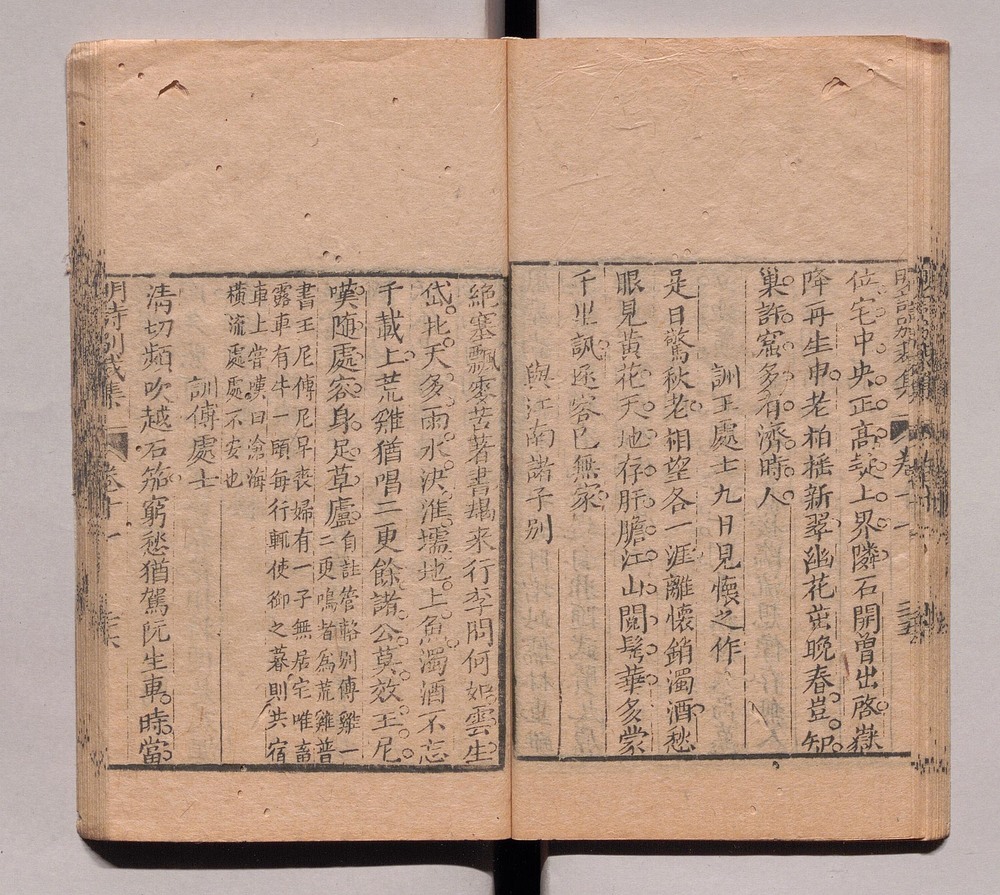 位宅中央正高靈上界隣石開曾出啓嶽
降再生申老柏搖新翠幽花茁晚春豈知
巢許窟多有濟時人
訓王處士九日見懷之作
是日驚秋老相望各一涯離懷銷濁酒愁
眼見黃花天地存肝膽江山閱鬓華多蒙
千里訊逐客已無家
與江南諸子別
絕塞飄零苦著書朅來行李問何如雲生
岱北天多雨水決淮壖地上魚濁酒不忘
千載上荒雞猶唱二更餘諸公莫效王尼
嘆隨處容身足草廬自註管輅別傳雞一
二更鳴者為荒雞晉
書王尼傳尼早喪婦有一子無居宅唯畜
露車有牛一頭每行輒使御之暮則共宿
車上嘗嘆曰滄海
橫流處處不安也
訓傅處士
清切頻吹越石笳窮愁猶駕阮生車時當
明詩別裁集 卷十一